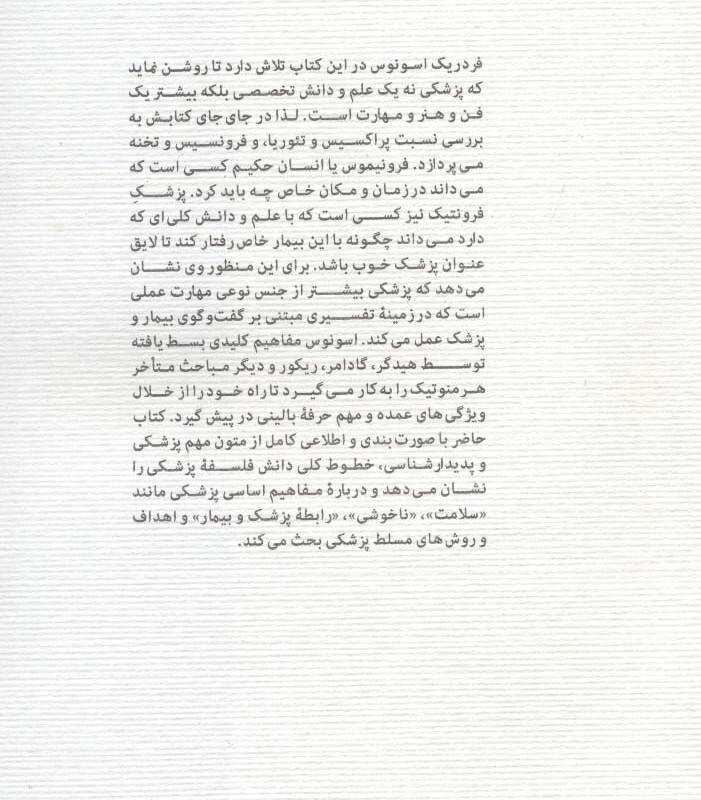 فردریک اسونوس در این کتاب تلاش دارد تا روشن نماید
که پزشکی نه یک علم و دانش تخصصی بلکه بیشتر یک
فن و هنر و مهارت است. لذا در جای جای کتابش به
بررسی نسبت پراکسیس و تئوریا، و فرونسیس و تخنه
می پردازد. فرونیموس یا انسان حکیم کسی است که
می داند در زمان و مکان خاص چه باید کرد. پزشکِ
فرونتیک نیز کسی است که با علم و دانش کلی ای که
دارد می داند چگونه با این بیمار خاص رفتار کند تا لایق
عنوان پزشک خوب باشد. برای این منظور وی نشان
می دهد که پزشکی بیشتر از جنس نوعی مهارت عملی
است که در زمینۀ تفسیری مبتنی بر گفت‌وگوی بیمار و
پزشک عمل می کند. اسونوس مفاهیم کلیدی بسط یافته
توسط هیدگر، گادامر، ریکور و دیگر مباحث متأخر
هرمنوتیک را به کار می گیرد تا راه خود را از خلال
ویژگی های عمده و مهم حرفۀ بالینی در پیش گیرد. کتاب
حاضر با صورت بندی و اطلاعی کامل از متون مهم پزشکی
و پدیدارشناسی، خطوط کلی دانش فلسفۀ پزشکی را
نشان می دهد و دربارۀ مفاهیم اساسی پزشکی مانند
«سلامت»، «ناخوشی»، «رابطۀ پزشک و بیمار» و اهداف
و روش های مسلط پزشکی بحث می کند.